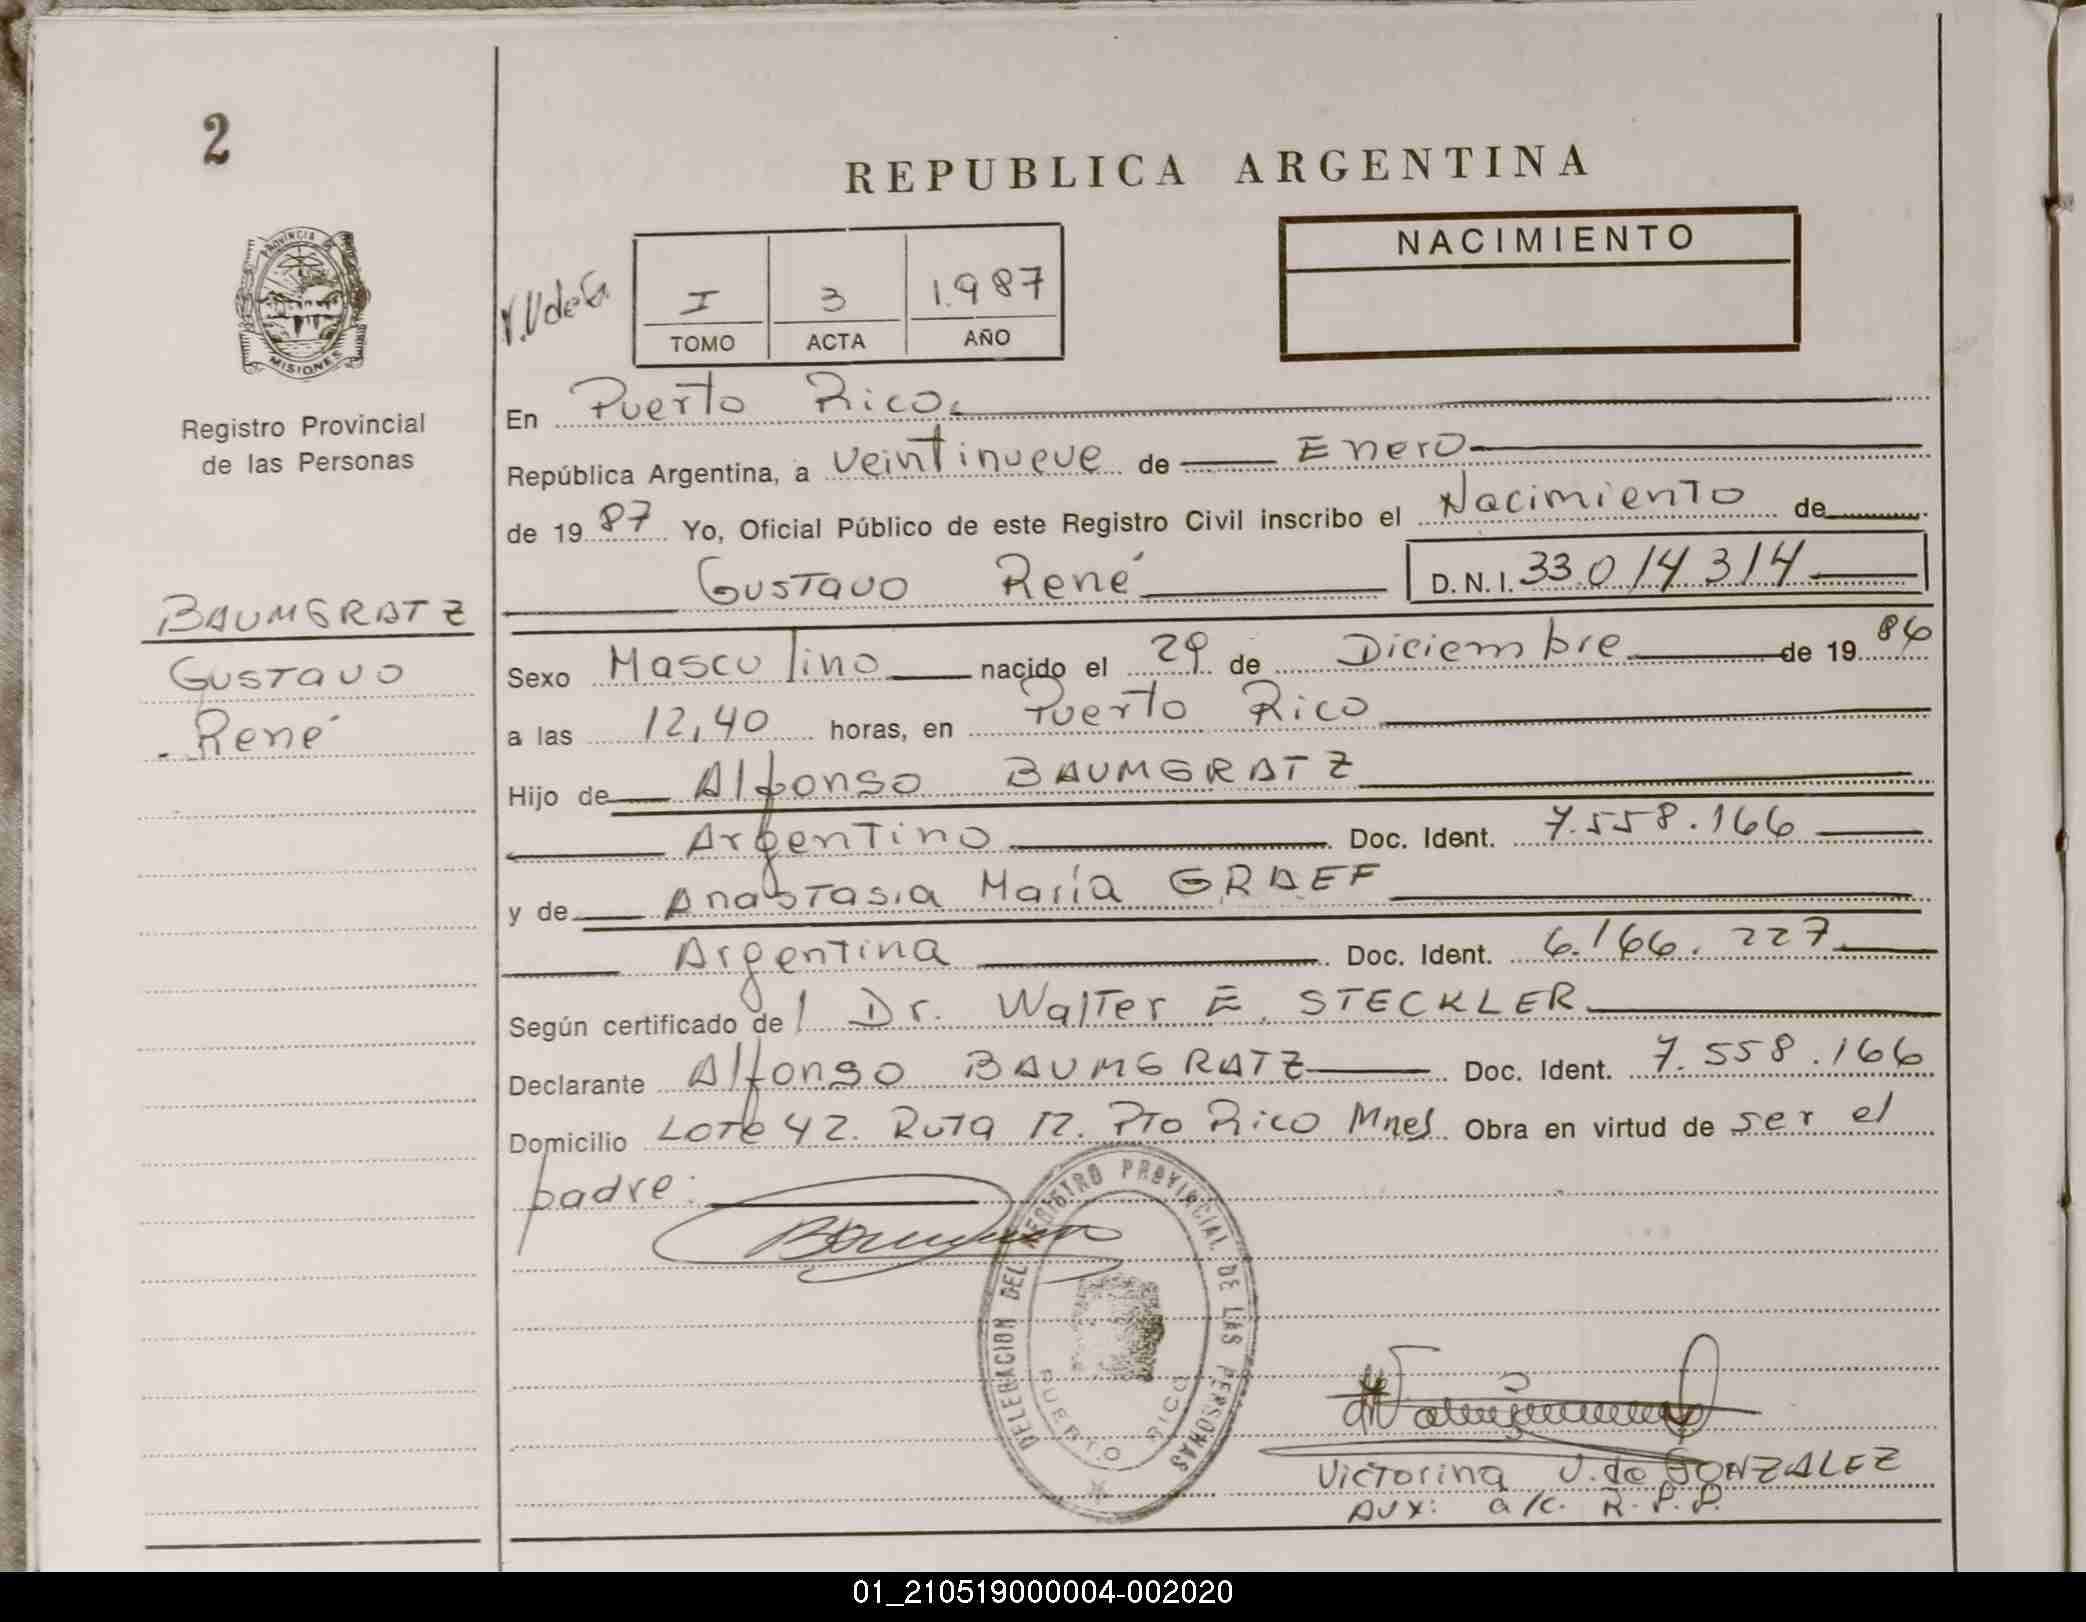 2
REPUBLICA ARGENTINA
PROVINCIA
MISIONES
Registro Provincial
de las Personas
V.V de G.
I 3 1.987
TOMO ACTA AÑO
NACIMIENTO
En Puerto Rico.
República Argentina, a veintinueve de Enero
de 19 87 Yo, Oficial Público de este Registro Civil inscribo el Nacimiento de
Gustavo René D.N.I. 33.014.314
BAUMGRATZ
Gustavo
René
Sexo Masculino nacido el 29 de Diciembre de 19 86
a las 12,40 horas, en Puerto Rico
Hijo de Alfonso BAUMGRATZ
Argentino Doc. Ident. 7.558.166
y de Anastasia María GRAEF
Argentina Doc. Ident. 6.166.227
Según certificado del Dr. Walter E. STECKLER
Declarante Alfonso BAUMGRATZ Doc. Ident. 7.558.166
Domicilio Lote 42. Ruta 12. Pto Rico Mnes Obra en virtud de ser el
padre.
DELEGACION DEL REGISTRO PROVINCIAL DE LAS PERSONAS
PUERTO RICO
Victorina V. de GONZALEZ
Aux: a/c. R.P.P.
01_210519000004-002020